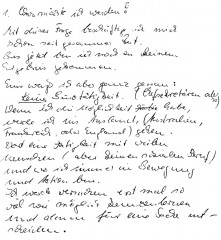 1. Was möchte ich werden?
Mit dieser Frage beschäftige ich mich
schon seit geraumer Zeit.
Bis jetzt bin ich noch zu keinem
Ergebnis gekommen.
Eins weiß ich aber ganz genau:
keine Bürotätigkeit. (Chefsekretärin oder so)
Wenn ich die Möglichkeit habe,
werde ich ins Ausland, (Australien,
Frankreich oder England) gehen.
Und eine Tätigkeit mit vielen
Menschen (aber keinen sozialen Beruf)
und wo ich immer in Bewegung
und Aktion bin.
Ich werde versuchen erst mal so
viel wie möglich kennenlernen
und dann für eine Sache ent-
scheiden.